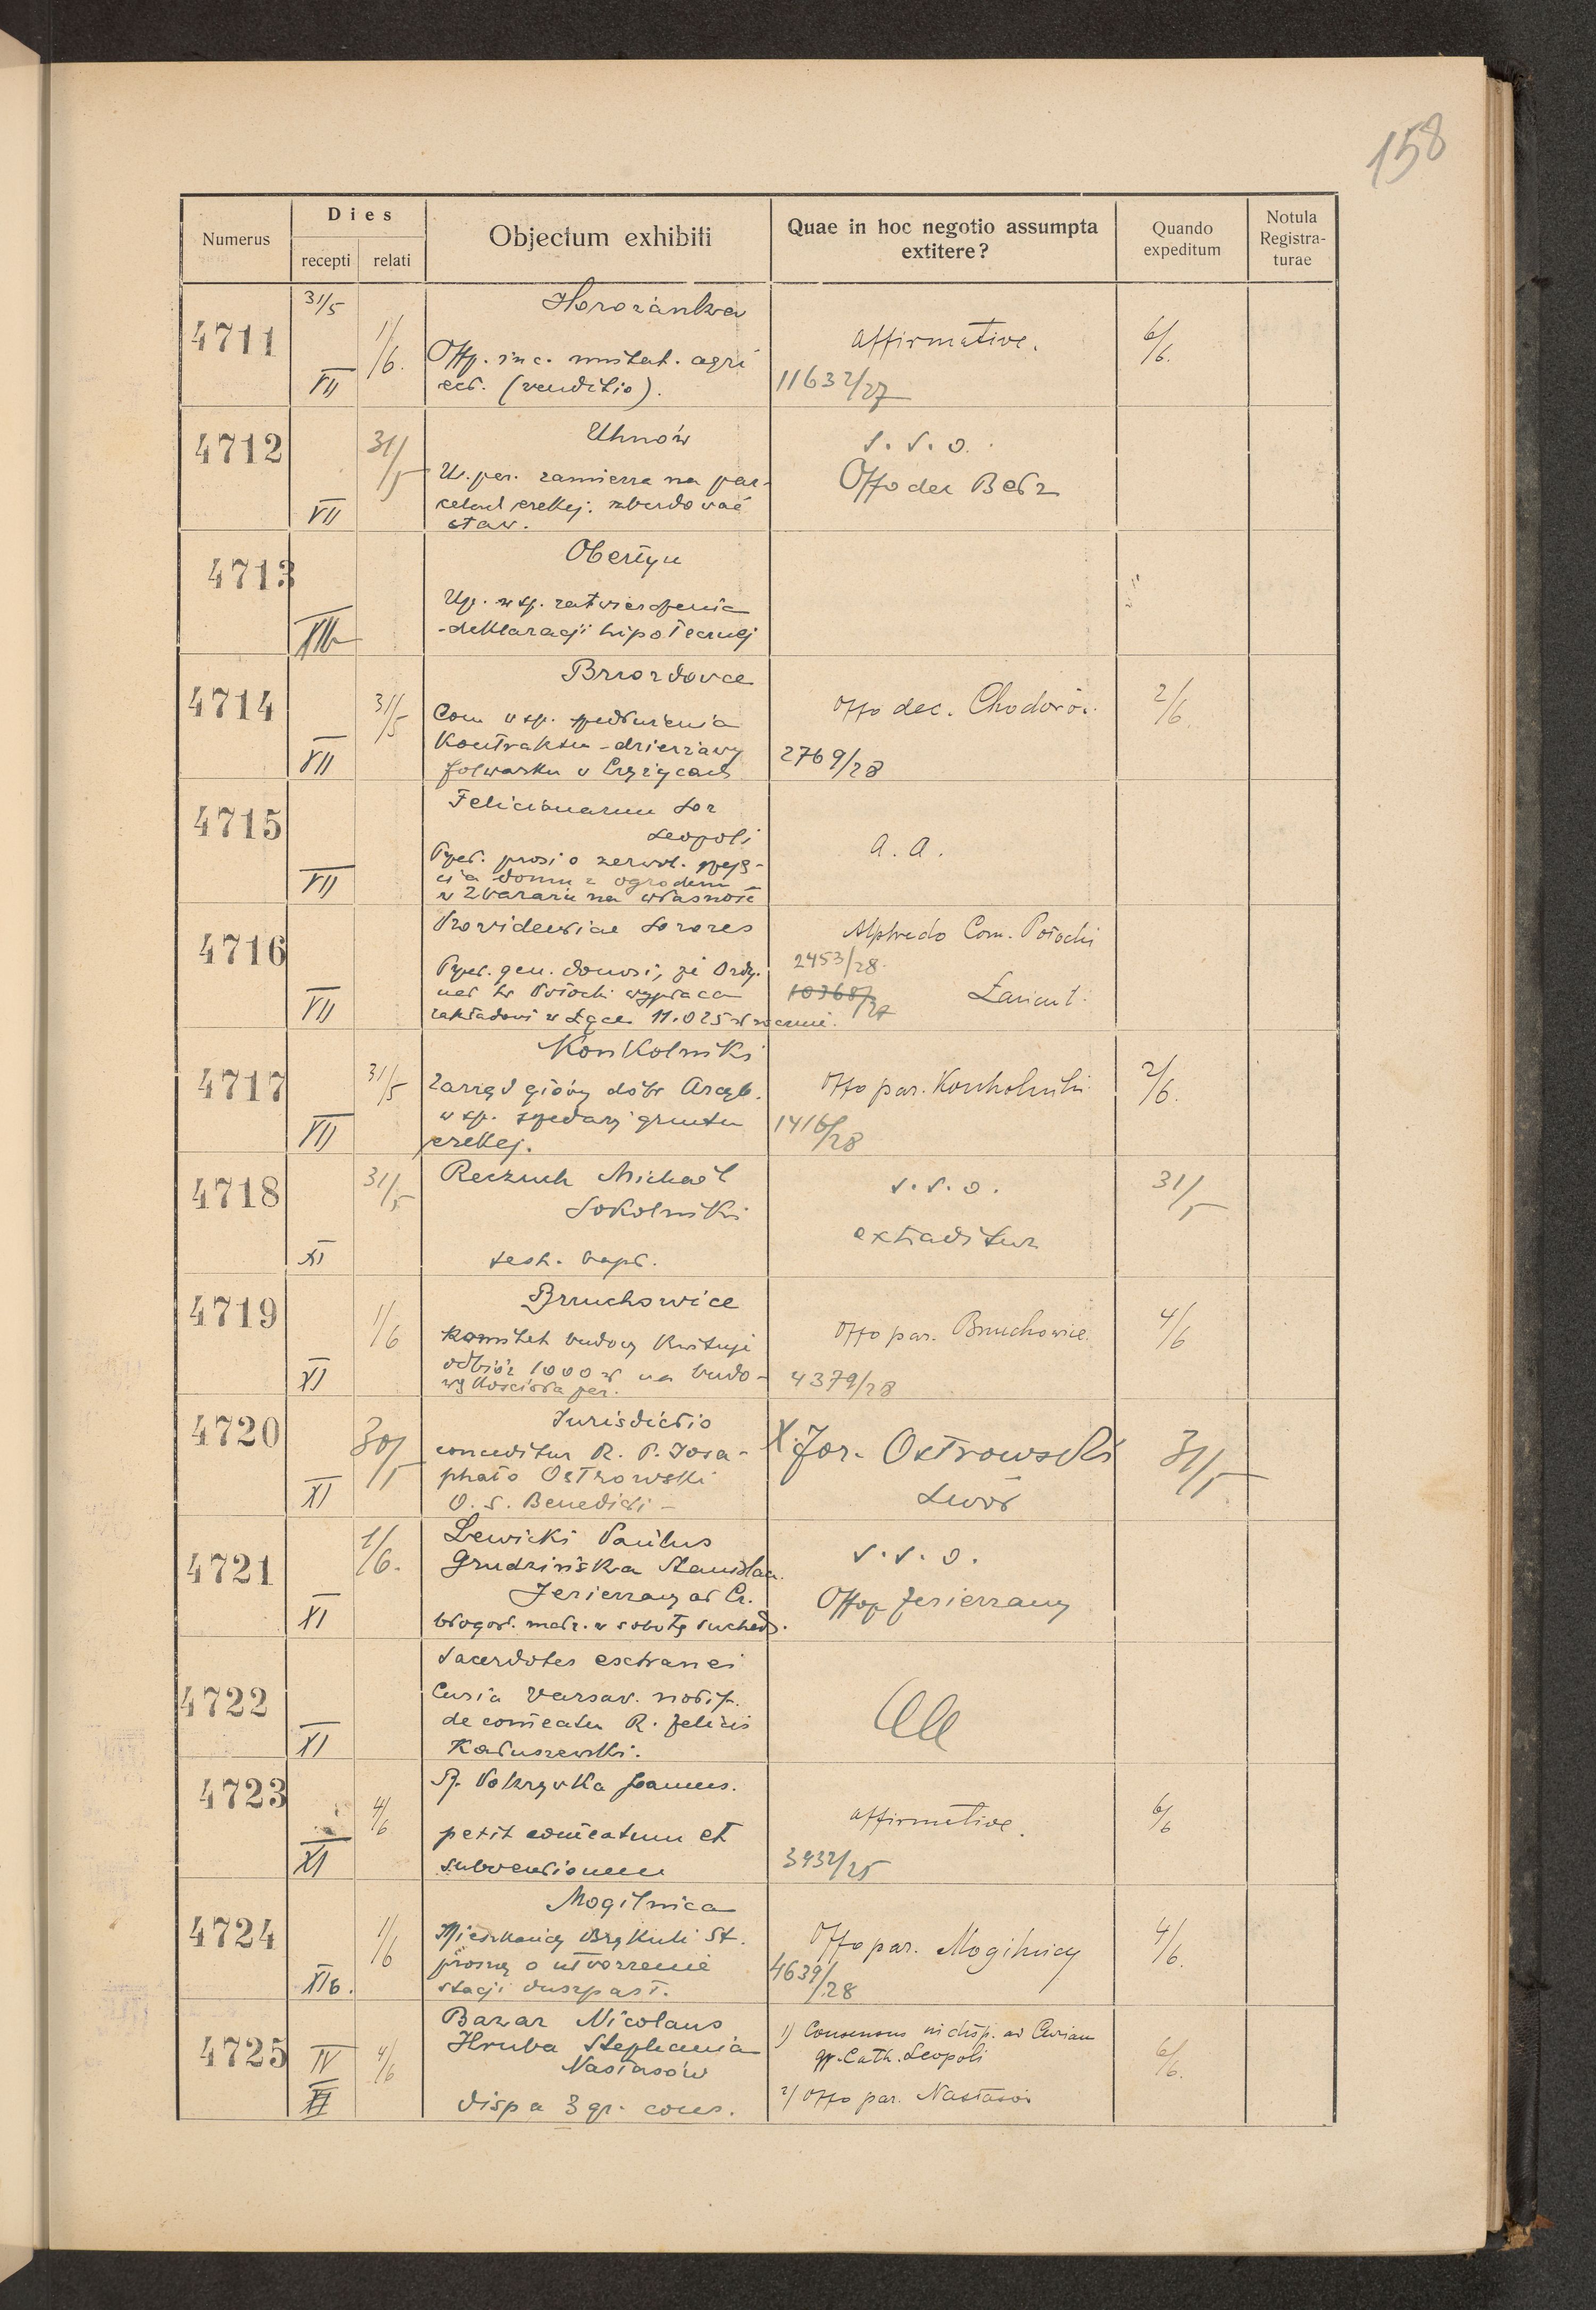 158
Numerus
Dies
recepti relati
Objectum exhibiti
Quae in hoc negotio assumpta
extitere?
Quando
expeditum
Notula
Registra-
turae
4711
31/5
VII
1/6.
Horożanka
Offp. inc. mutat. agri
eccl. (venditio).
affirmative.
11632/27
6/6.
4712
VII
31/5
Uhnów
U. par. zamierza na par-
celach erekcj. zbudować
staw.
s. s. o.
Offo dec Bełz
4713
XIb
Obertyn
Up. w sp. zatwierdzenia
deklaracji hipotecznej
4714
VII
31/5
Brzozdowce
Com w sp. przedłużenia
kontraktu dzierżawy
folwarku w Czyżycach
Offo dec. Chodorów.
2769/28
2/6.
4715
VII
Felicianarum Sor
Leopoli
Przeł. prosi o zezwol. przeję-
cia domu z ogrodem
w Zbarażu na własność
a. a.
4716
VII
Providentiae Sorores
Przeł. gen. donosi, że Ordy.
nat hr Potocki wypłaca
zakładowi w Łące 11.025 zł rocznie.
Alphredo Com. Potocki
2453/28.
10368/27
Łańcut.
4717
VII
31/5
Konkolniki
Zarząd główny dóbr Arcyb.
w sp. sprzedaży gruntu
erekcj.
Offo par. Konkolniki
1416/28
2/6.
4718
XI
31/5
Reczuch Michaël
Sokolniki
test. bapt.
s. s. o.
extraditur
31/5
4719
XI
1/6
Brzuchowice
Komitet budowy kwituje
odbiór 1000 zł na budo-
wę kościoła par.
Offo par. Brzuchowice.
4379/28
4/6
4720
XI
30/5
Jurisdictio
conceditur R. P. Josa-
phato Ostrowski
O. S. Benedicti -
X. Joz. Ostrowski
Lwów
31/5
4721
XI
1/6.
Lewicki Paulus
Grudzińska Stanisława.
Jezierzany ad Cz.
błogosł. małż. w sobotę suched.
s. s. o.
Offop Jezierzany
4722
XI
Sacerdotes extranei
Curia Varsav. notif.
de comeatu R. Felicis
Kałuszewski.
4723
XI
4/6
R. Pokrywka Joannes.
petit comeatum et
subventionem
affirmative.
3932/25
6/6
4724
XIb.
1/6
Mogilnica
Mieszkańcy Brykuli St.
proszą o utworzenie
stacji duszpast.
Offo par. Mogilnicy
4639/28
4/6.
4725
IV
XI
4/6
Bazar Nicolaus
Hruba Stephania
Nastasów
dispa 3 gr. cons.
1) Consensus in disp. ad Curiam
gr. Cath. Leopoli
2) Offo par. Nastasów
6/6.